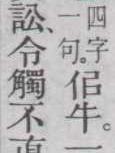 四字
一句。
佀牛。一
訟、令觸不直